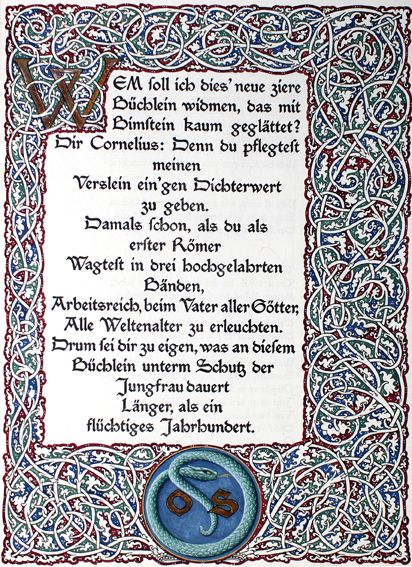 WEM ſoll ich dies' neue ziere
Büchlein widmen, das mit
Bimſtein kaum geglättet?
Dir Cornelius: Denn du pflegteſt
meinen
Verslein ein'gen Dichterwert
zu geben.
Damals ſchon, als du als
erſter Römer
Wagteſt in drei hochgelahrten
Bänden,
Arbeitsreich, beim Vater aller Götter,
Alle Weltenalter zu erleuchten.
Drum ſei dir zu eigen, was an dieſem
Büchlein unterm Schutz der
Jungfrau dauert
Länger, als ein
flüchtiges Jahrhundert.
O S